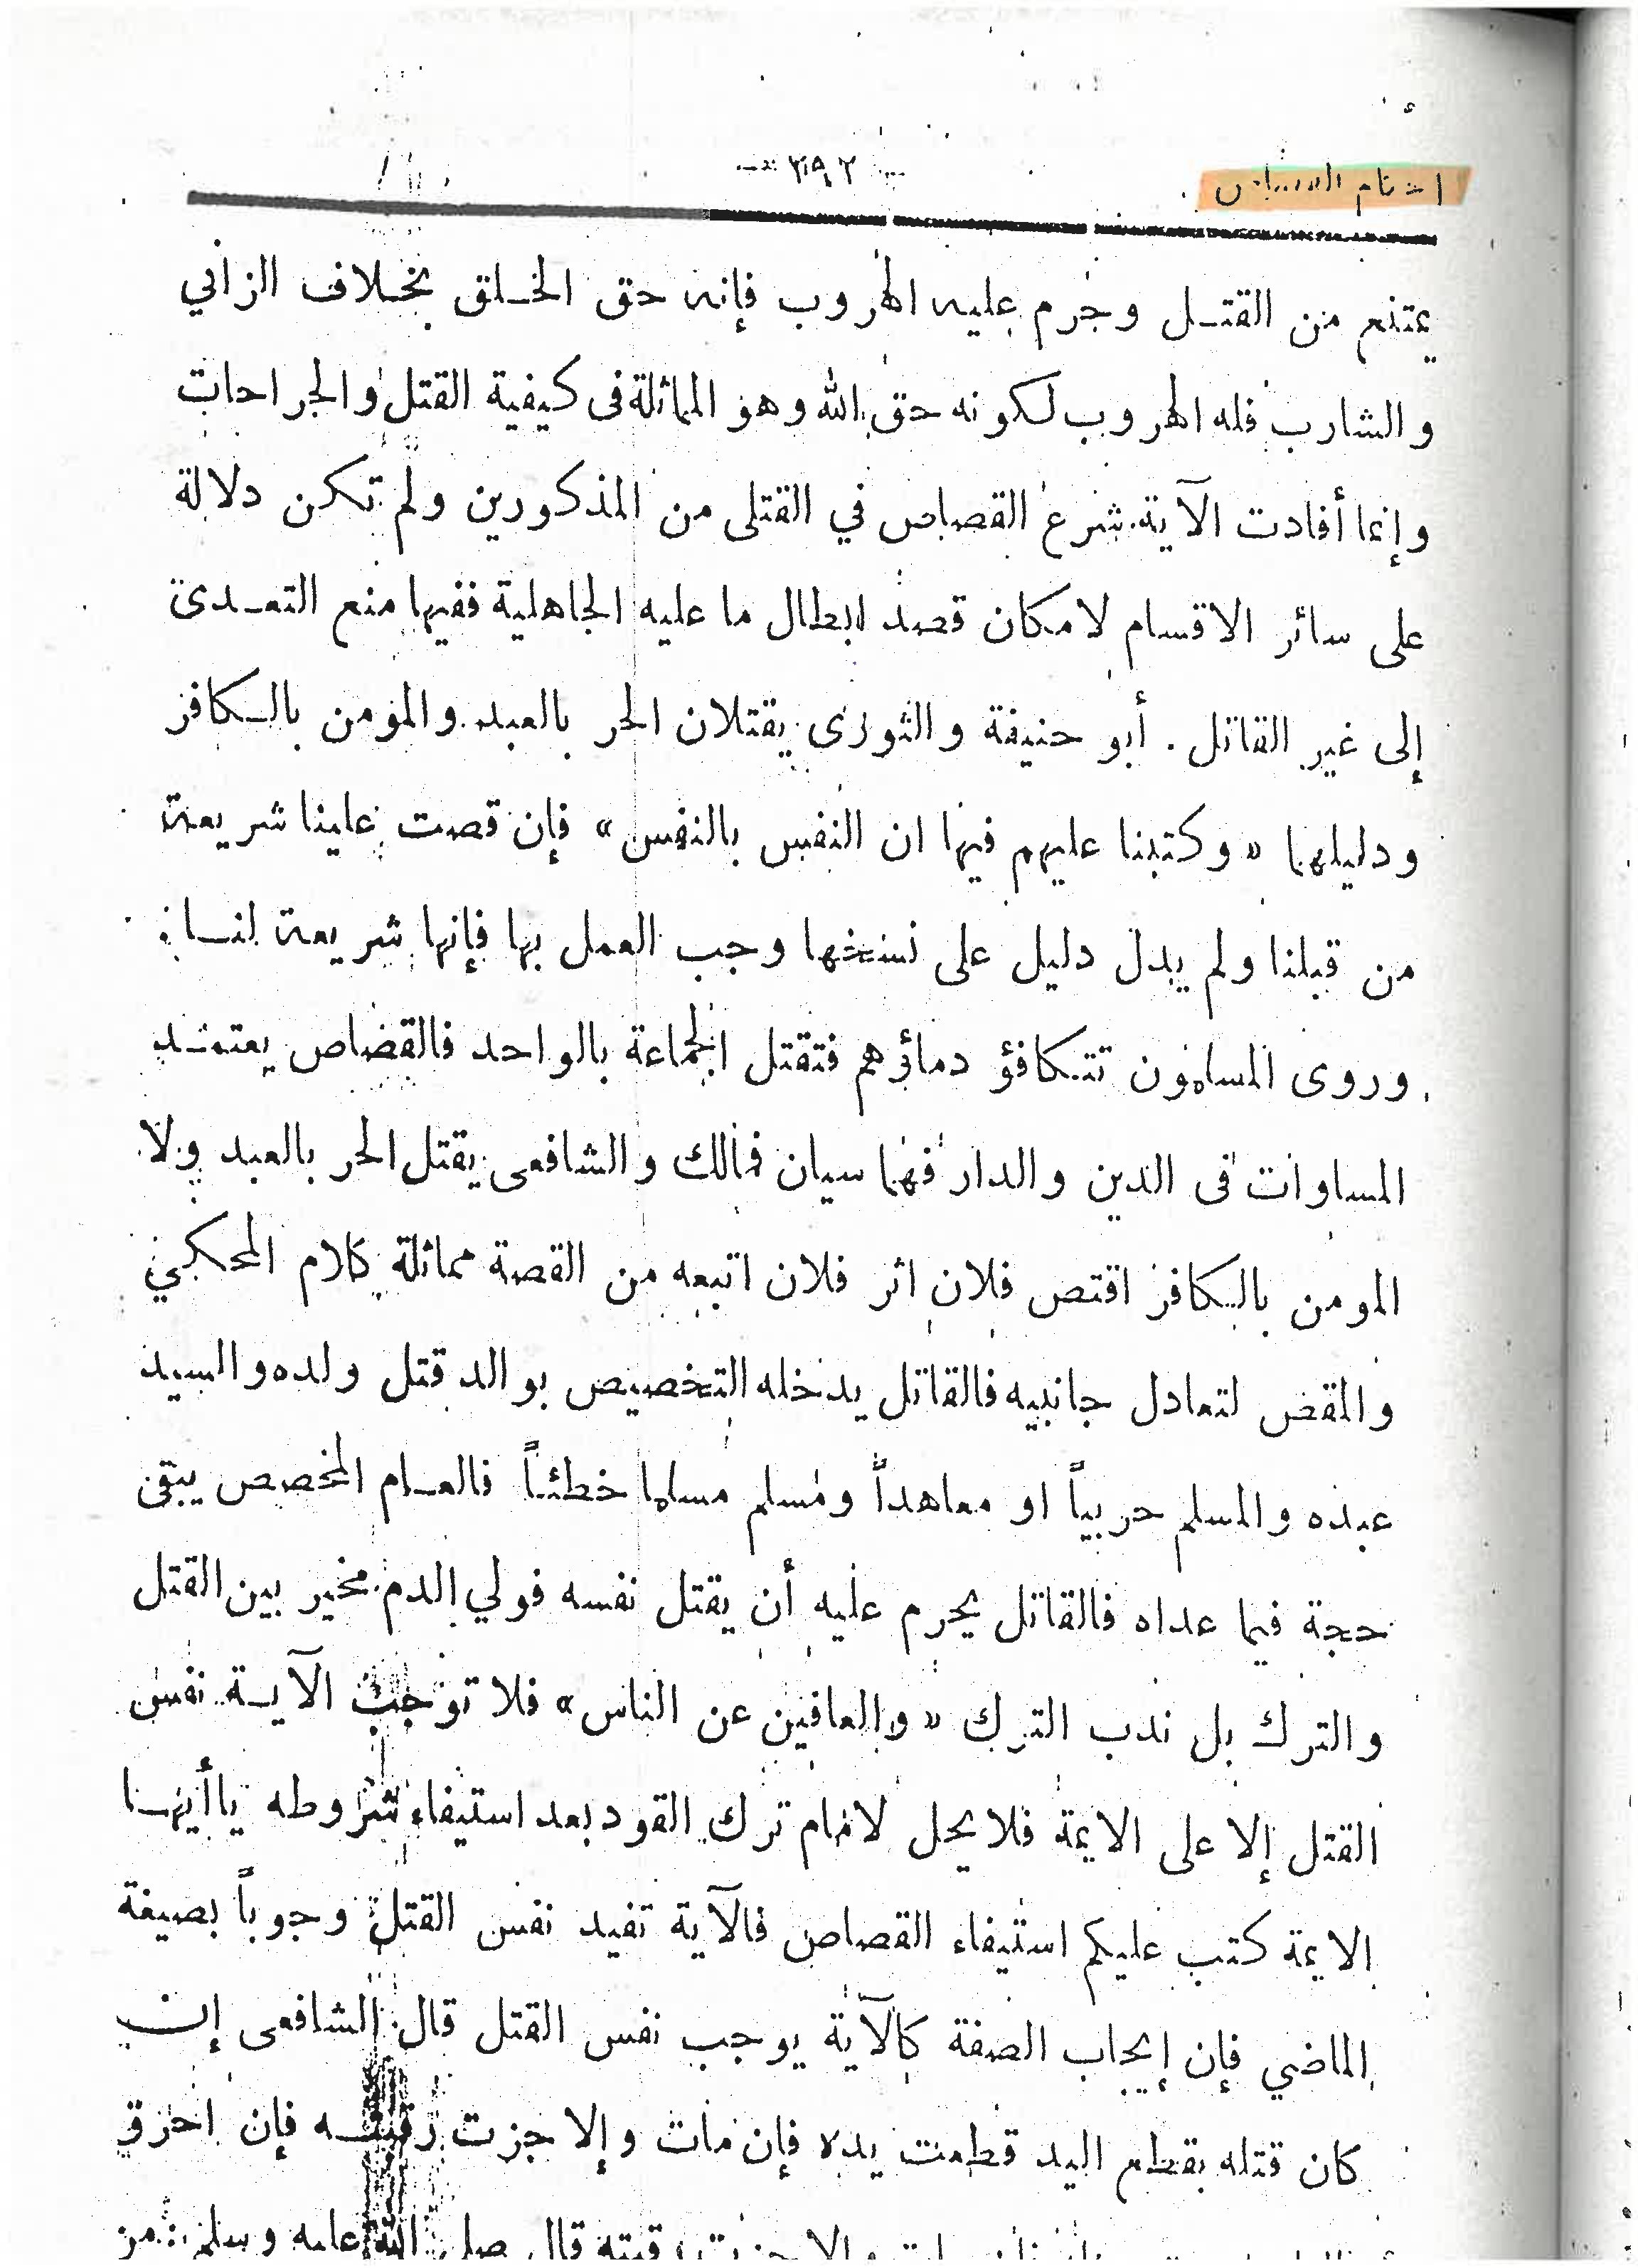 ٣٩٢
يمتنع من القتـل وحرم عليه الهروب فإنه حق الخـلق بخـلاف الزاني
والشارب فله الهروب لكونه حق الله وهو المماثلة فى كيفية القتل والجراحات
وإنما أفادت الآية شرع القصاص في القتلى من المذكورين ولم تكن دلالة
على سائر الاقسام لامكان قصد ابطال ما عليه الجاهلية ففيها منع التعـدى
إلى غير القاتل . أبو حنيفة والثورى يقتلان الحر بالعبد والمؤمن بالـكافر
ودليلهما « وكتبنا عليهم فيها ان النفس بالنفس » فإن قصت علينا شريعة
من قبلنا ولم يدل دليل على نسخها وجب العمل بها فإنها شريعة لنـا
وروى المسلمون تتـكافؤ دماؤهم فتقتل الجماعة بالواحد فالقصاص يعتمـد
المساوات فى الدين والدار فهما سيان فمالك والشافعى يقتل الحر بالعبد ولا
المومن بالـكافر اقتص فلان اثر فلان اتبعه من القصة مماثلة كلام المحكي
والمقص لتعادل جانبيه فالقاتل يدخله التخصيص بوالد قتل ولده والسيد
عبده والمسلم حربياً او معاهداً ومسلم مسلما خطئـاً فالعـام المخصص يبقى
حجة فيما عداه فالقاتل يحرم عليه أن يقتل نفسه فولي الدم مخير بين القتل
والترك بل ندب الترك « والعافين عن الناس » فلا توجب الآيـة نفس
القتل إلا على الايمة فلا يحل لامام ترك القود بعد استيفاء شروطه ياأيهـا
الايمة كتب عليكم استيفاء القصاص فالآية تفيد نفس القتل وجوباً بصيغة
الماضي فإن إيجاب الصفة كالآية يوجب نفس القتل قال الشافعى إن
كان قتله بقطع اليد قطعت يده فإن مات وإلا جزت رقبتـه فإن احرق
وإلا جزت رقبته قال صلى الله عليه وسلم من